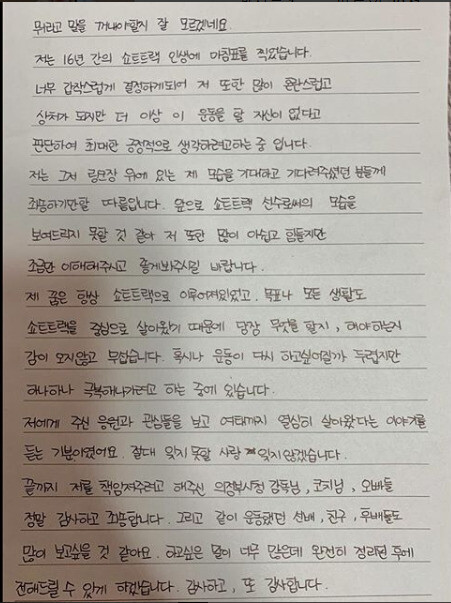 뭐라고 말을 꺼내야할지 잘 모르겠네요.
저는 16년 간의 쇼트트랙 인생에 마침표를 찍었습니다.
너무 갑작스럽게 결정하게되어 저 또한 많이 혼란스럽고
상처가 되지만 더 이상 이 운동을 할 자신이 없다고
판단하여 최대한 긍정적으로 생각하려고하는 중 입니다.
저는 그저 링크장 위에 있는 제 모습을 기대하고 기다려주셨던 분들께
죄송하기만할 따름입니다. 앞으로 쇼트트랙 선수로써의 모습을
보여드리지 못할 것 같아 저 또한 많이 아쉽고 힘들지만
조금만 이해해주시고 좋게봐주시길 바랍니다.
제 꿈은 항상 쇼트트랙으로 이루어져있었고, 목표나 모든 생활도
쇼트트랙을 중심으로 살아왔기 때문에 당장 무엇을 할지, 해야하는지
감이 오지않고 무섭습니다. 혹시나 운동이 다시 하고싶어질까 두렵지만
하나하나 극복해나가려고 하는 중에 있습니다.
저에게 주신 응원과 관심들을 보고 여태까지 열심히 살아왔다는 이야기를
듣는 기분이였어요. 절대 잊지 못할 사랑 잊지않겠습니다.
끝까지 저를 책임져주려고 해주신 의정부시청 감독님, 코치님, 오빠들
정말 감사하고 죄송합니다. 그리고 같이 운동했던 선배, 친구, 후배들도
많이 보고싶을 것 같아요. 하고싶은 말이 너무 많은데 완전히 정리된 후에
전해드릴 수 있게 하겠습니다. 감사하고, 또 감사합니다.